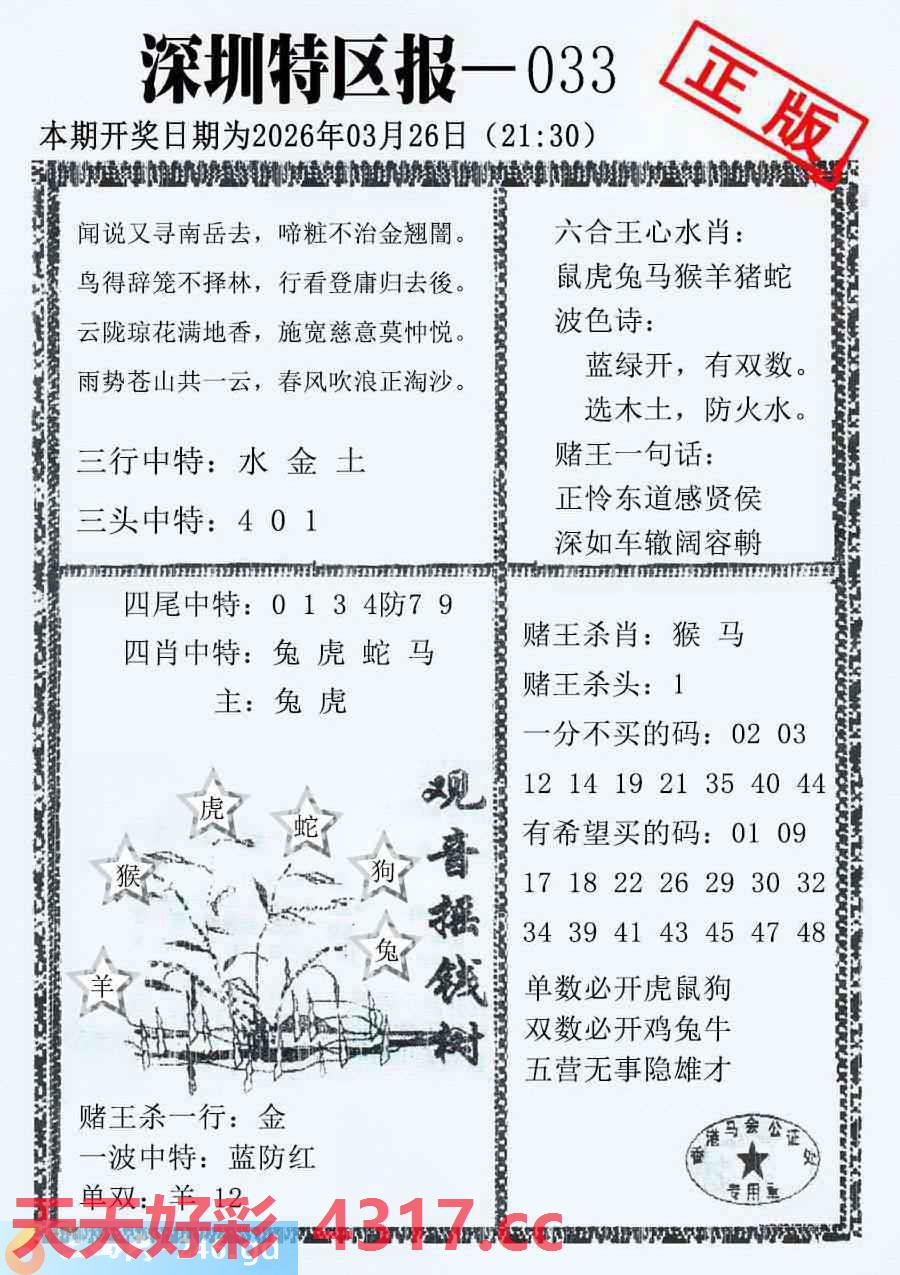 深圳特区报—033
正版
本期开奖日期为2026年03月26日（21:30）
闻说又寻南岳去，啼粧不治金翘闇。
鸟得辞笼不择林，行看登庸归去後。
云陇琼花满地香，施宽慈意莫忡悦。
雨势苍山共一云，春风吹浪正淘沙。
三行中特：水 金 土
三头中特：4 0 1
六合王心水肖：
鼠虎兔马猴羊猪蛇
波色诗：
蓝绿开，有双数。
选木土，防火水。
赌王一句话：
正怜东道感贤侯
深如车辙阔容鹩
四尾中特：0 1 3 4防7 9
四肖中特：兔 虎 蛇 马
主：兔 虎
虎
蛇
猴
狗
兔
羊
观音摇钱树
赌王杀一行：金
一波中特：蓝防红
单双：羊 12
赌王杀肖：猴 马
赌王杀头：1
一分不买的码：02 03
12 14 19 21 35 40 44
有希望买的码：01 09
17 18 22 26 29 30 32
34 39 41 43 45 47 48
单数必开虎鼠狗
双数必开鸡兔牛
五营无事隐雄才
香港马会公证处
专用章
天天好彩 4317.cc